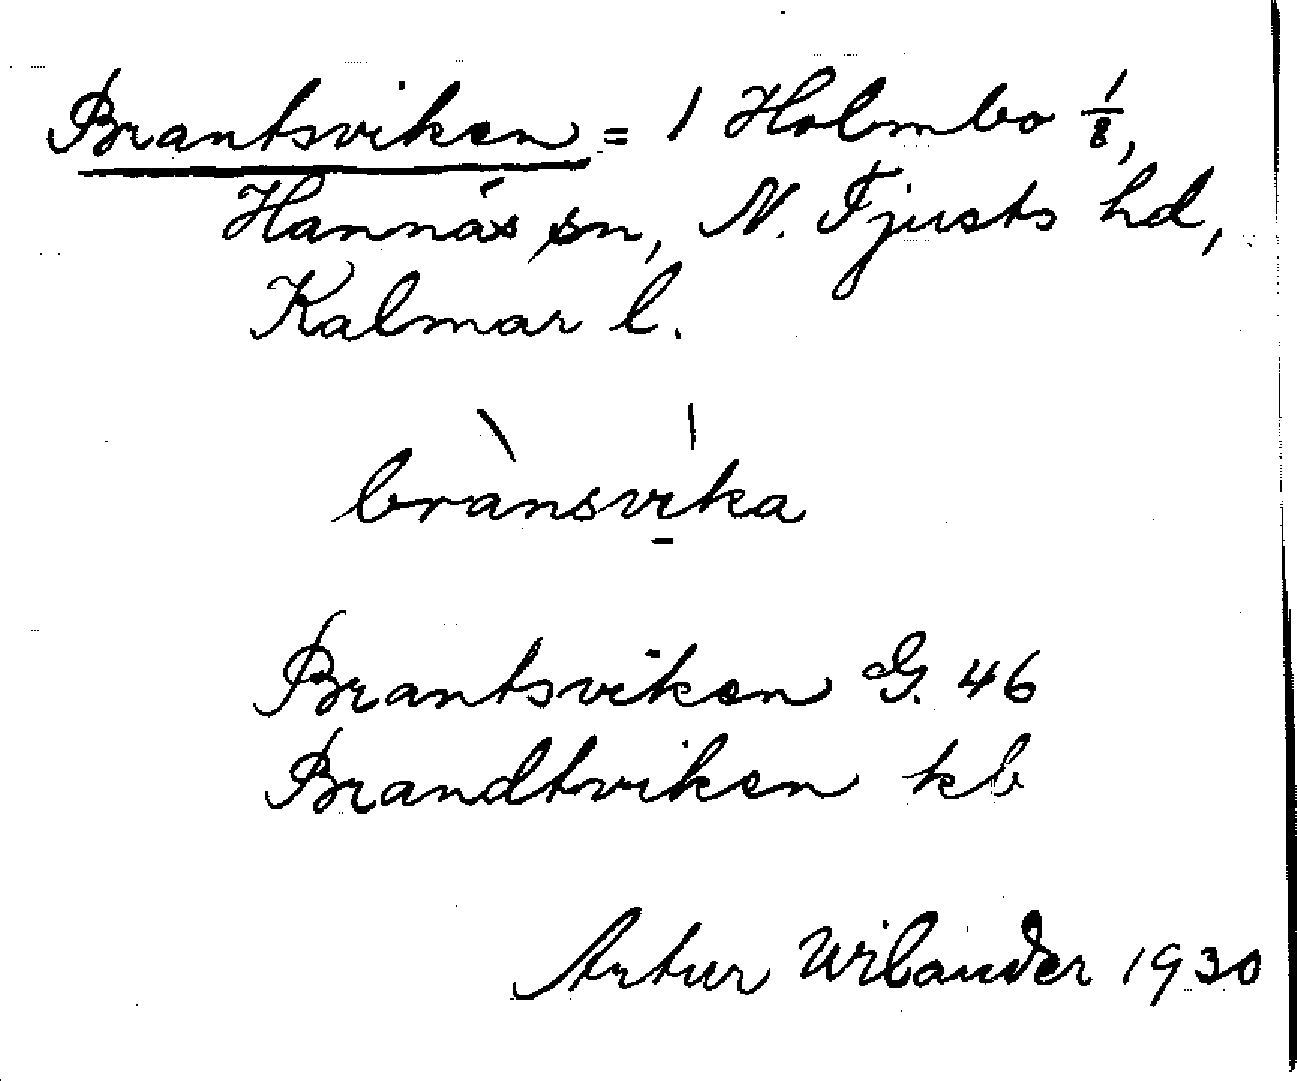 Brantsviken = 1 Holmbo 1/8,
Hannäs sn, N. Tjusts hd,
Kalmar l.
brànsvi̱ka
Brantsviken G. 46
Brandtviken kb
Artur Wilander 1930